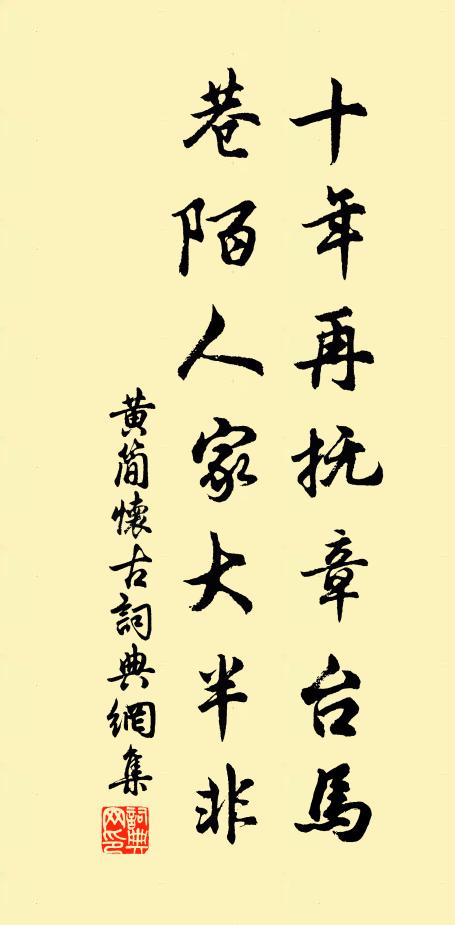 十年再抚章台馬
巷陌人家大半非
黄简懷古詞典網集
詞典网印